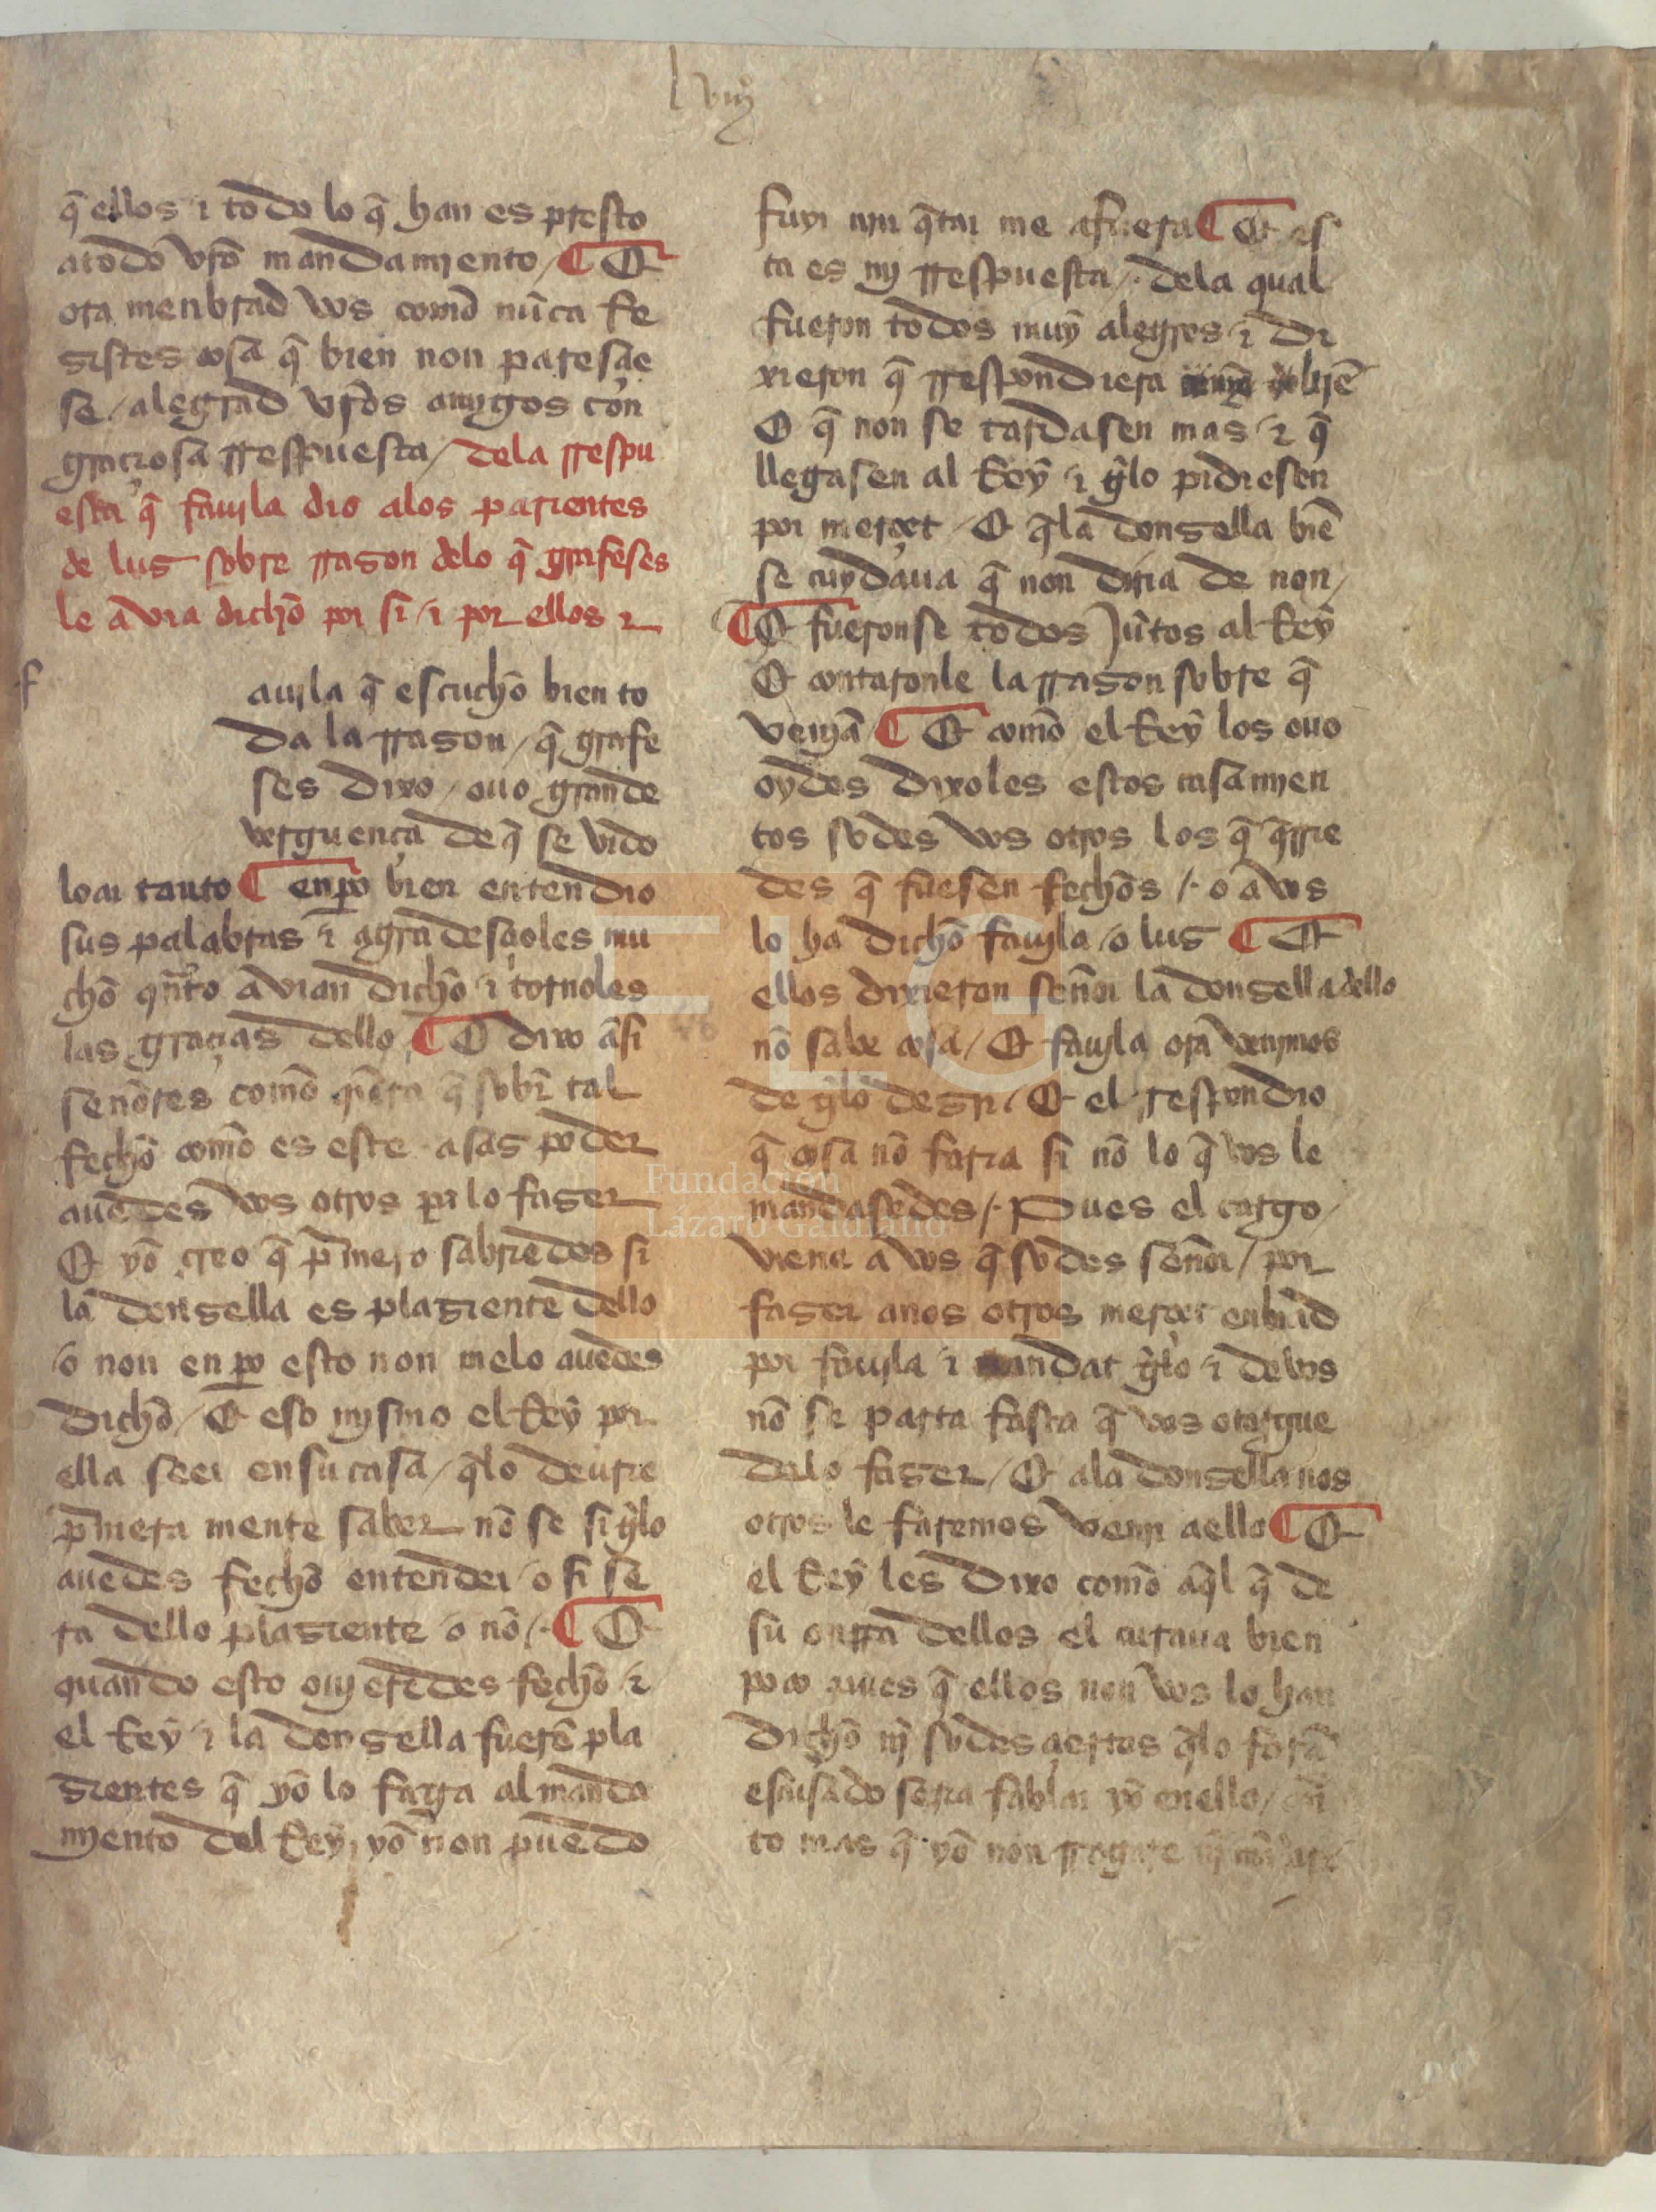 lviijº
q̃ ellos ⁊ todo lo q̃ han es presto
a todo vr̃o mandamiento / ¶ E
ora menbrad vos comõ nũca fe
zistes cosa q̃ bien non paresçie
se / alegrad vr̃os amygos con
graçiosa rrespuesta / dela rrespu
esta q̃ fauila dio alos parientes
de luz sobre rrazon delo q̃ grafeses
le avia dichõ por si / ⁊ por ellos ⁊
f
auila q̃ escuchõ bien to
da la rrazon / q̃ grafe
ses dixo / ouo grande
verguença de q̃ se vido
loar tanto ¶ enp̱o bien entendio
sus palabras ⁊ agradesçioles mu
chõ qñto avian dichõ ⁊ tornoles
las graçias dello ¶ E dixo asi
señores comõ quiera q̃ sobr̃ tal
fechõ comõ es este asaz poder
auedes vos otros pa lo fazer
E yõ creo q̃ p̃mero sabriedes si
la donzella es plaziente dello
o non enp̱o esto non melo auedes
dichõ / E eso mysmo el Rey por
ella seer en su casa / q̃lo deurie
p̃mera mente saber nõ se si gelo
auedes fechõ entender / o si se
ra dello plaziente o nõ /· ¶ E
quando esto ouieredes fechõ ⁊
el Rey ⁊ la donzella fuerẽ pla
zientes q̃ yõ lo faga al manda
miento del Rey, yõ non puedo
fuyr nin q̃tar me afuera ¶ E es
ta es my rrespuesta /· dela qual
fueron todos muy alegres ⁊ di
xieron q̃ rrespondiera biẽ
E q̃ non se tardasen mas / ⁊ q̃
llegasen al Rey ⁊ gelo pidiesen
por merçet / E q̃ la donzella biẽ
se cuydaua q̃ non diria de non /
¶ E fueronse todos Jũtos al Rey
E contaronle la rrazon sobre q̃
veniã ¶ E comõ el Rey los ouo
oydos dixoles estos casamien
tos sodes vos otros los q̃ q̃rrie
des q̃ fuesen fechõs /· o a vos
lo ha dichõ fauila / o luz ¶ E
ellos dixieron señor la donzella dello
nõ sabe cosa / E fauila ora venimos
de gelo dezir / E el rrespondio
q̃ cosa nõ faria si nõ lo q̃ vos le
mandasedes /· Pues el cargo /
viene a vos q̃ sodes señor / por
fazer anos otros merçet enbiad
por fauila ⁊ mandat gelo ⁊ de vos
nõ se parta fasta q̃ vos otorgue
delo fazer / E ala donzella nos
otros le faremos venir aello ¶ E
el Rey les dixo comõ aq̃l q̃ de
su onrra dellos el curaua bien
poco pues q̃ ellos non vos lo han
dichõ nj̃ sodes çiertos q̃lo forã
escusado seria fablar yõ enello /
to mas q̃ yõ non rrogare